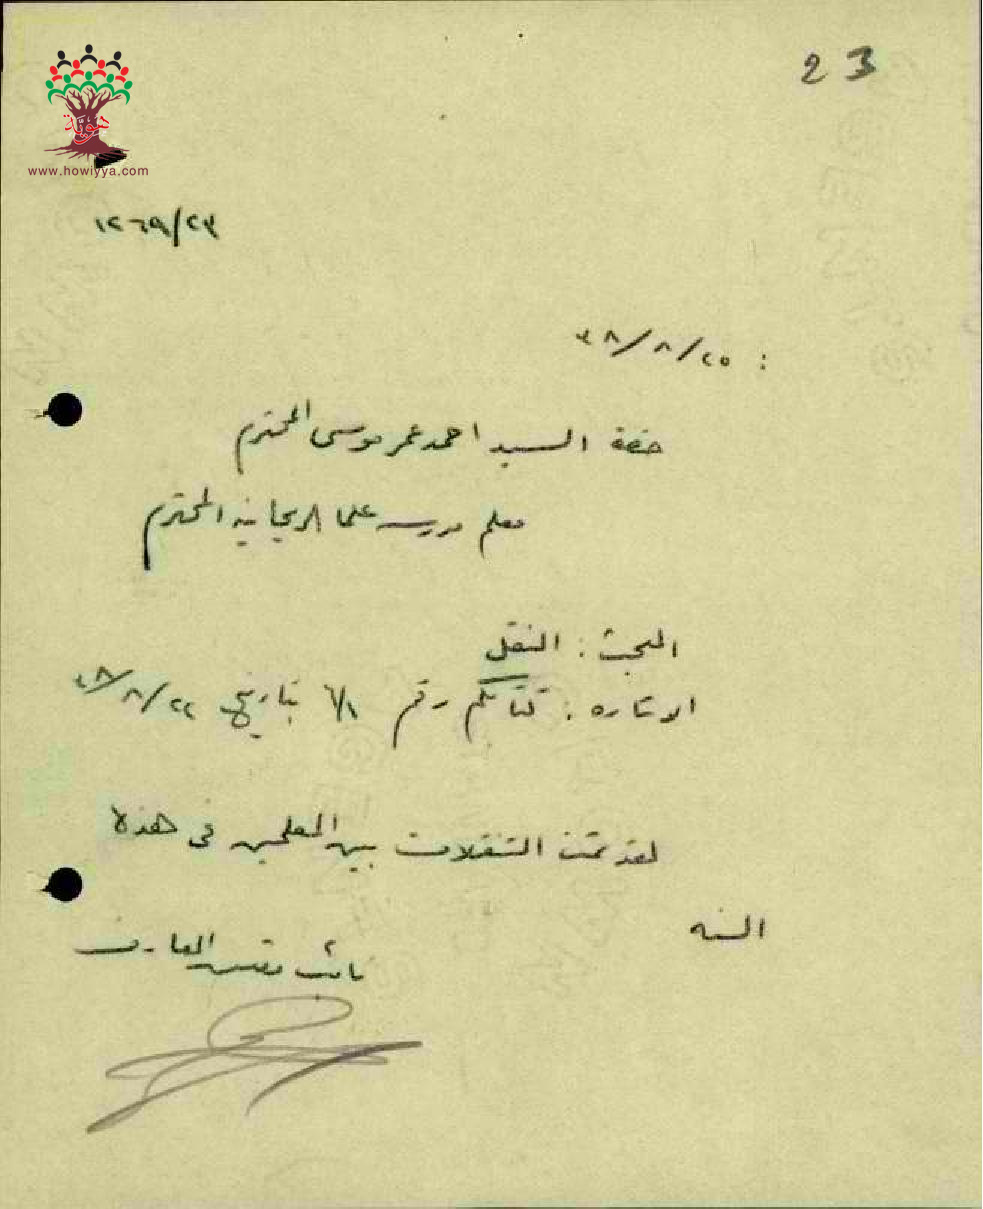 23
هوية
www.howiyya.com
١٢٦٩/٢٣
: ٣٨/٨/٢٥
حضرة السيد احمد عمر موسى المحترم
معلم مدرسة علما الريحانية المحترم
البحث : النقل
الاشاره : كتابكم رقم ٦/١ بتاريخ ٣٨/٨/٢٢
لقد تمت التنقلات بين المعلمين في هذه
السنه
نائب مفتش المعارف